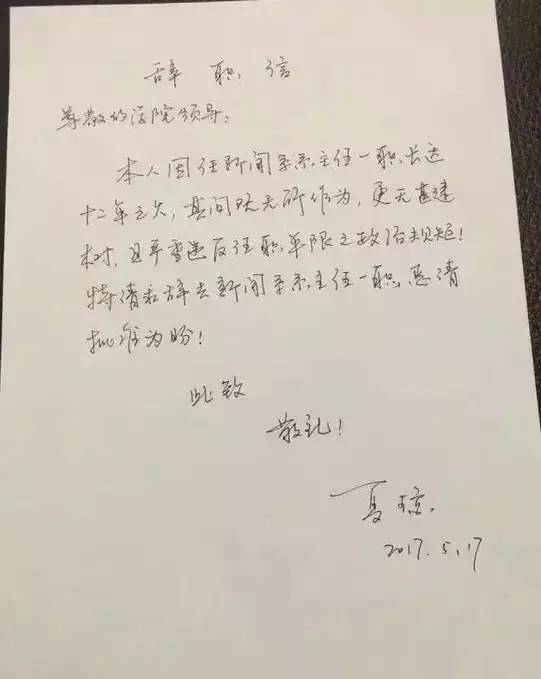 辞职信
尊敬的学院领导：
本人因任新闻系系主任一职，长达
十二年之久，其间既无所作为，更无甚建
树，且严重违反任职年限之政治规矩！
特请求辞去新闻系系主任一职，恳请
批准为盼！
此致
敬礼！
夏琼
2017.5.17